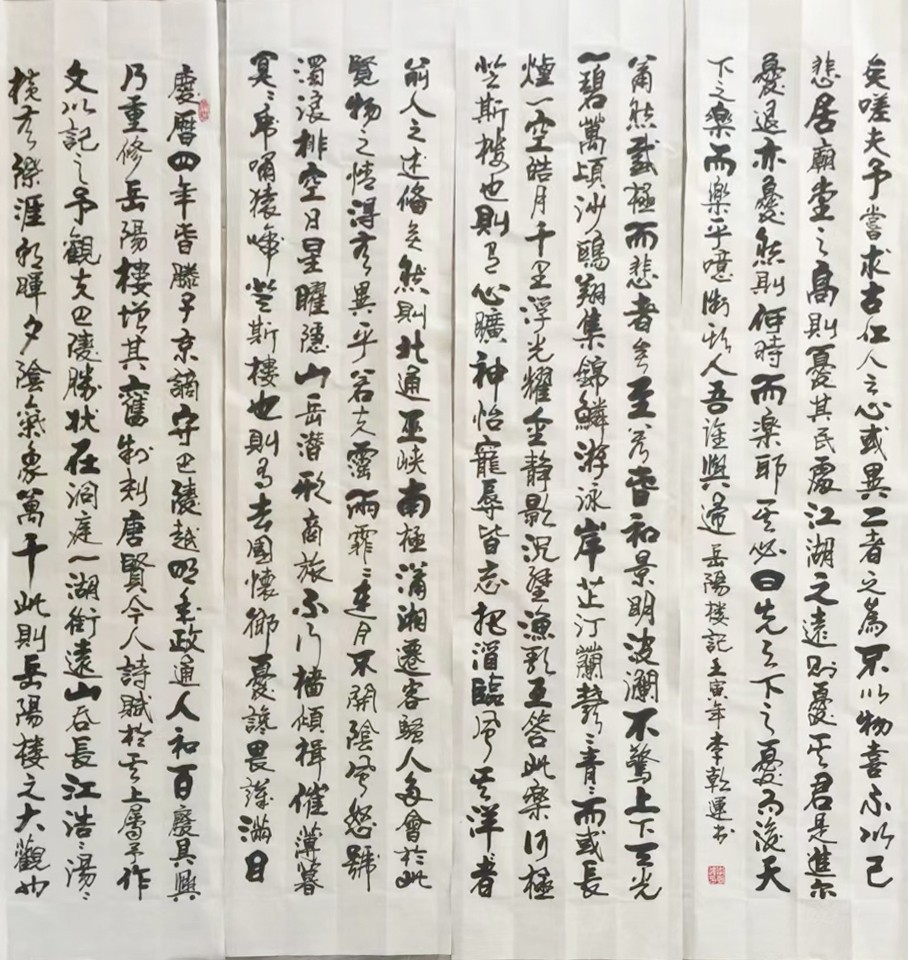 慶曆四年旾滕子京謫守巴陵越明年政通人和百廢具興
乃重修岳陽樓增其舊制刻唐賢今人詩賦於其上屬予作
文以記之予觀夫巴陵勝狀在洞庭一湖銜遠山吞長江浩〻湯〻
橫无際涯朝暉夕陰氣象萬千此則岳陽楼之大觀也
前人之述備矣然則北通巫峽南極瀟湘遷客騷人多會於此
覽物之情得无異乎若夫霪雨霏〻連月不開陰風怒號
濁浪排空日星曜隱山岳潛形商旅不行檣傾楫催薄暮
冥〻虎嘯猿啼登斯樓也則有去國懷鄉憂讒畏譏滿目
蕭然感極而悲者矣至若旾和景明波瀾不驚上下天光
一碧萬頃沙鷗翔集錦鱗游泳岸芷汀蘭郁〻青〻而或長
煙一空皓月千里浮光耀金靜影沉壁漁歌互答此樂何極
登斯樓也則有心曠神怡寵辱皆忘把酒臨風其洋〻者
矣嗟夫予嘗求古仁人之心或異二者之為不以物喜不以己
悲居廟堂之高則憂其民處江湖之遠則憂其君是進亦
憂退亦憂然則何時而樂耶其必曰先天下之憂而後天
下之樂而樂乎噫微斯人吾誰與歸 岳陽楼記壬寅年李乾運书